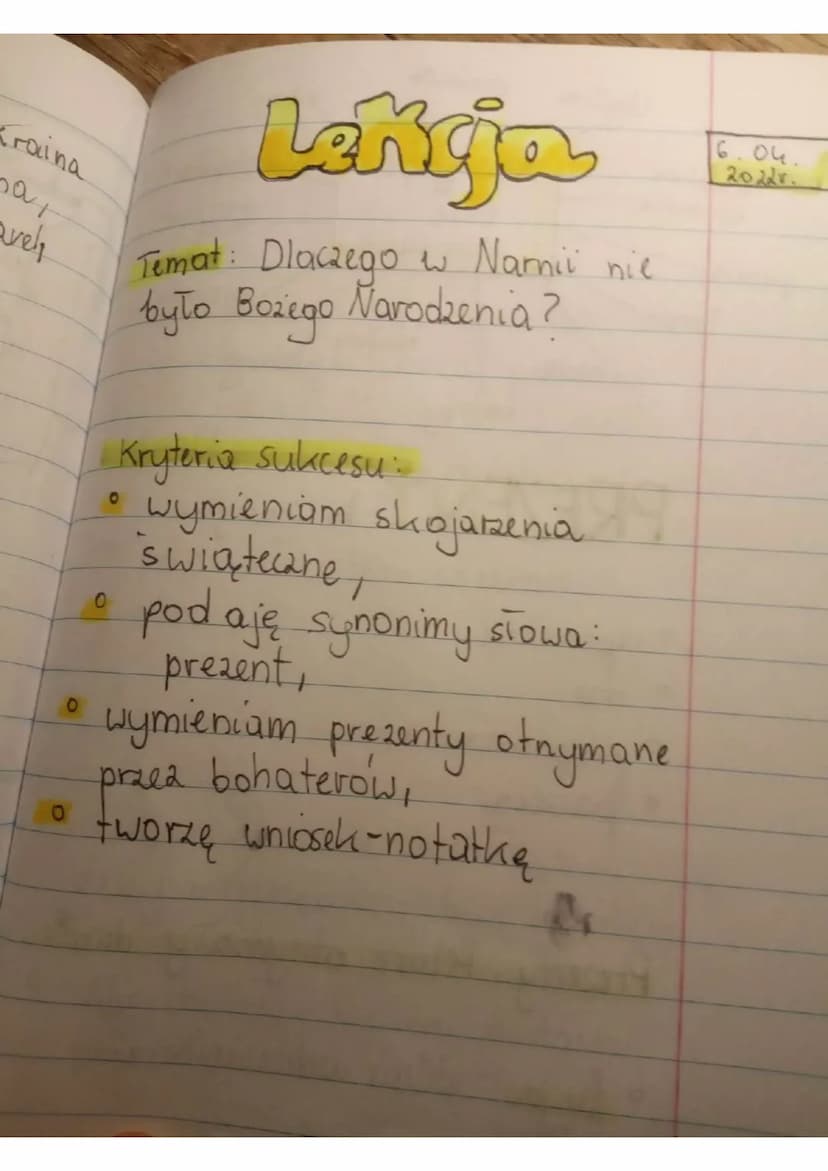 Kraina
Lekcja
6.04.
2022r.
Temat: Dlaczego w Narnii nie
było Bożego Narodzenia?
Kryteria sukcesu:
wymieniam skojarzenia
świąteczne,
podaję synonimy słowa:
prezent,
wymieniam prezenty otrzymane
przez bohaterów,
tworzę wniosek-notatkę